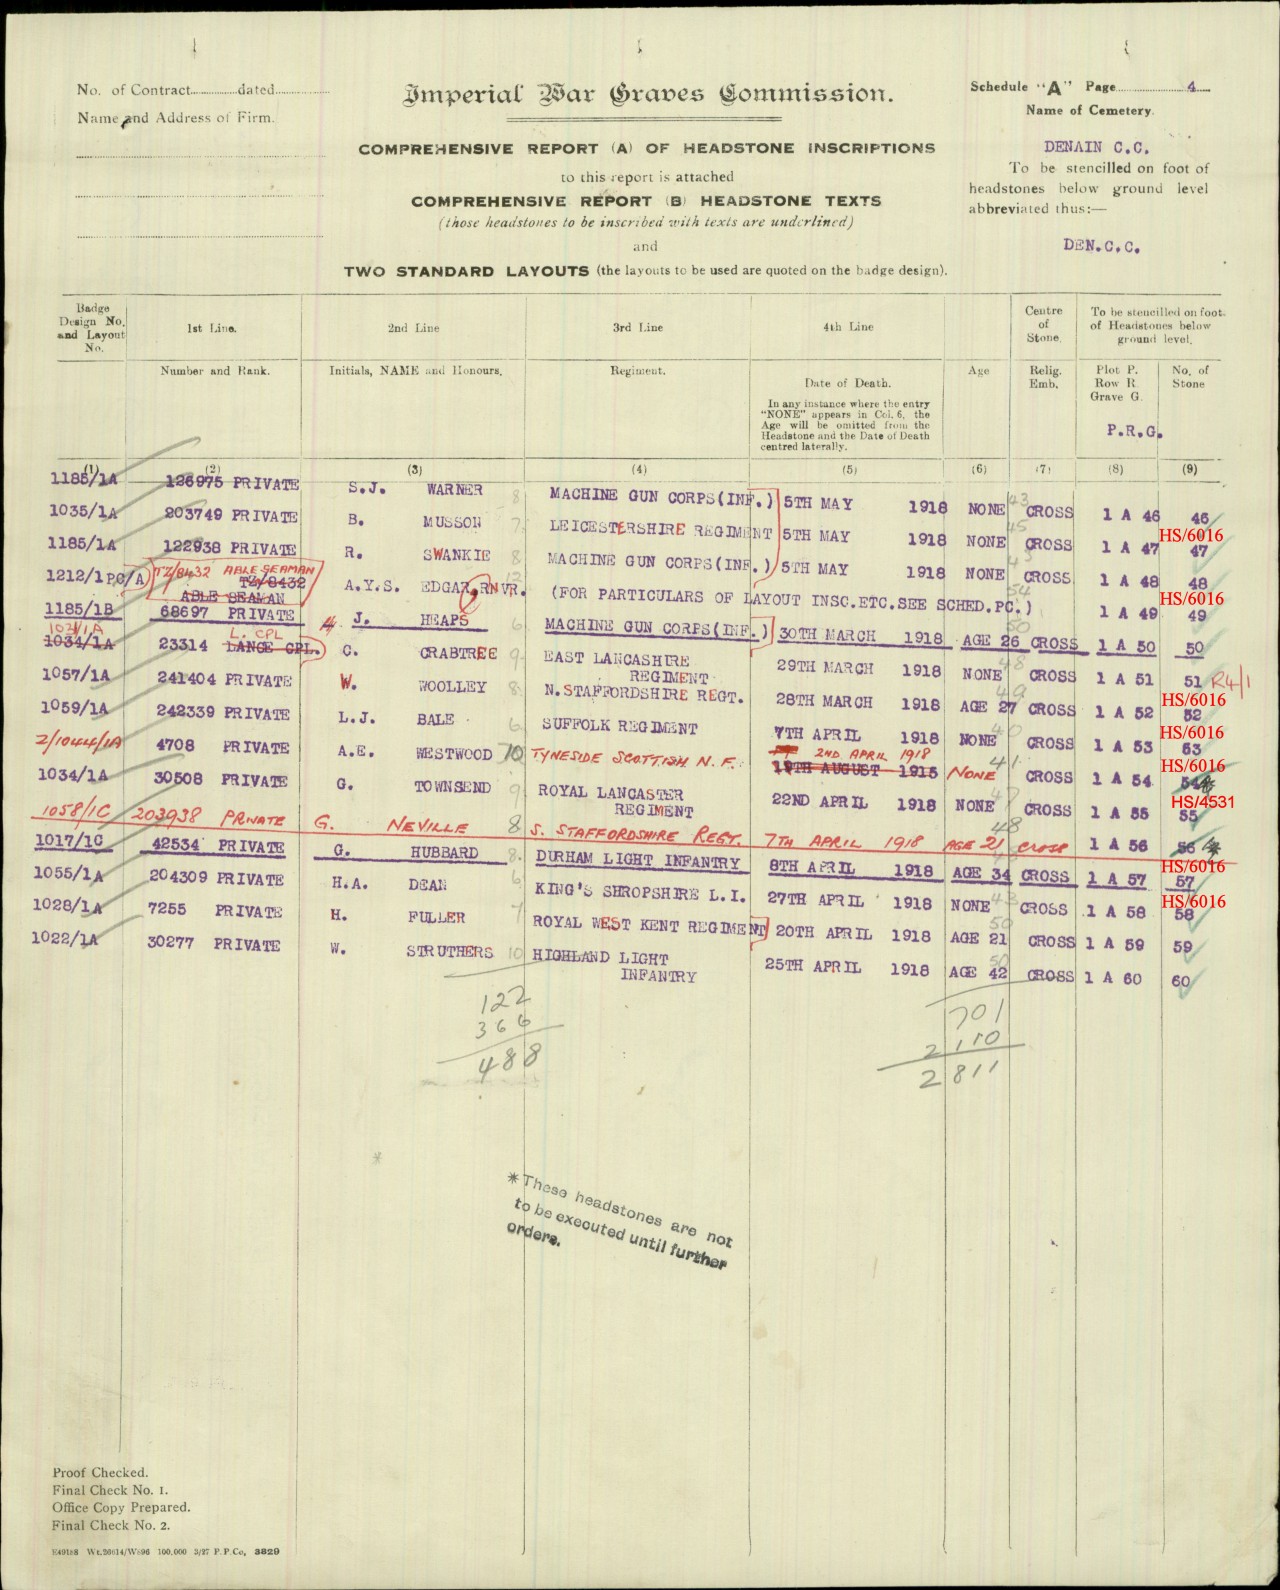 No. of Contract...............dated..................
Name and Address of Firm.
Imperial War Graves Commission.
COMPREHENSIVE REPORT (A) OF HEADSTONE INSCRIPTIONS
to this report is attached
COMPREHENSIVE REPORT (B) HEADSTONE TEXTS
(those headstones to be inscribed with texts are underlined)
and
TWO STANDARD LAYOUTS (the layouts to be used are quoted on the badge design).
Schedule "A" Page 4
Name of Cemetery.
DENAIN C.C.
To be stencilled on foot of
headstones below ground level
abbreviated thus:—
DEN.C.C.
Badge Design No. and Layout No.
1st Line.
2nd Line
3rd Line
4th Line
Centre of Stone.
To be stencilled on foot of Headstones below ground level.
Number and Rank.
Initials, NAME and Honours.
Regiment.
Date of Death.
In any instance where the entry "NONE" appears in Col. 6, the Age will be omitted from the Headstone and the Date of Death centred laterally.
Age
Relig. Emb.
Plot P. Row R. Grave G.
P.R.G.
No. of Stone
(1) (2) (3) (4) (5) (6) (7) (8) (9)
1185/1A 126975 PRIVATE S.J. WARNER 8 MACHINE GUN CORPS(INF.) 5TH MAY 1918 NONE 43 CROSS 1 A 46 46
1035/1A 203749 PRIVATE B. MUSSON 7 LEICESTERSHIRE REGIMENT 5TH MAY 1918 NONE 45 CROSS 1 A 47 HS/6016 47
1185/1A 122938 PRIVATE R. SWANKIE 8 MACHINE GUN CORPS(INF.) 5TH MAY 1918 NONE 43 CROSS 1 A 48 48
1212/1 P.C/A) TZ/8432 ABLE SEAMAN TZ/8432 ABLE SEAMAN A.Y.S. EDGAR, RNVR. 12 (FOR PARTICULARS OF LAYOUT INSC.ETC.SEE SCHED.PC.) 54 1 A 49 HS/6016 49
1185/1B 68697 PRIVATE J. HEAPS 6 MACHINE GUN CORPS(INF.) 30TH MARCH 1918 AGE 26 50 CROSS 1 A 50 50
1034/1A 23314 L. CPL LANCE CPL. C. CRABTREE 9 EAST LANCASHIRE REGIMENT 29TH MARCH 1918 NONE 48 CROSS 1 A 51 51 R4/1
1057/1A 241404 PRIVATE W. WOOLLEY 8 N.STAFFORDSHIRE REGT. 28TH MARCH 1918 AGE 27 49 CROSS 1 A 52 HS/6016 52
1059/1A 242339 PRIVATE L.J. BALE 6 SUFFOLK REGIMENT 7TH APRIL 1918 NONE 40 CROSS 1 A 53 HS/6016 53
2/1044/1A 4708 PRIVATE A.E. WESTWOOD 10 TYNESIDE SCOTTISH N.F. 2ND APRIL 1918 19TH AUGUST 1915 NONE 41 CROSS 1 A 54 HS/6016 54
1034/1A 30508 PRIVATE G. TOWNSEND 9 ROYAL LANCASTER REGIMENT 22ND APRIL 1918 NONE 47 CROSS 1 A 55 HS/4531 55
1058/1C 203938 PRIVATE G. NEVILLE 8 S. STAFFORDSHIRE REGT. 7TH APRIL 1918 AGE 21 48 CROSS 1 A 56 56 *
1017/1C 42534 PRIVATE G. HUBBARD 8 DURHAM LIGHT INFANTRY 8TH APRIL 1918 AGE 34 CROSS 1 A 57 HS/6016 57
1055/1A 204309 PRIVATE H.A. DEAN 6 KING'S SHROPSHIRE L.I. 27TH APRIL 1918 NONE 43 CROSS 1 A 58 HS/6016 58
1028/1A 7255 PRIVATE H. FULLER 7 ROYAL WEST KENT REGIMENT 20TH APRIL 1918 AGE 21 50 CROSS 1 A 59 59
1022/1A 30277 PRIVATE W. STRUTHERS 10 HIGHLAND LIGHT INFANTRY 25TH APRIL 1918 AGE 42 50 CROSS 1 A 60 60
122 701
366 2110
488 2811
*
*These headstones are not
to be executed until further
orders.
Proof Checked.
Final Check No. 1.
Office Copy Prepared.
Final Check No. 2.
E49188 Wt.26614/W896 100,000 3/27 P.P.Co, 3829